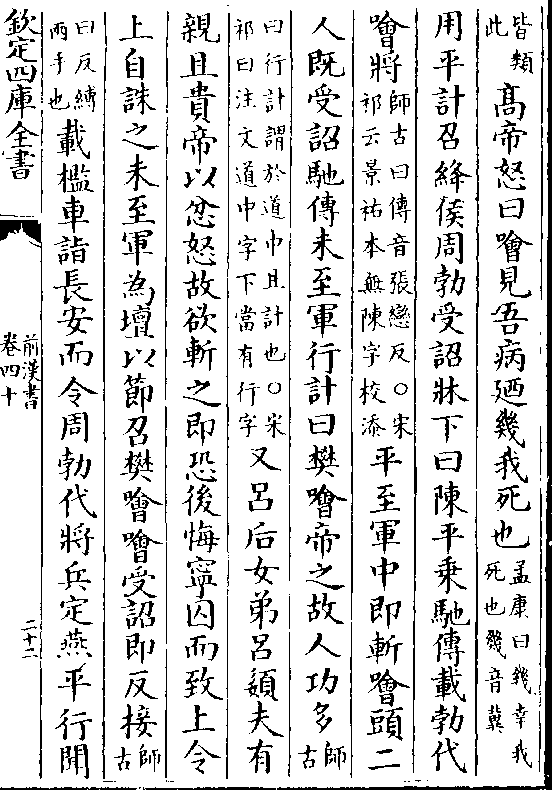 皆類
此
高帝怒曰噲見吾病廼幾我死也
孟康曰幾幸我
死也幾音冀
用平計召絳侯周勃受詔牀下曰陳平乗馳傳載勃代
噲將
師古曰傳音張戀反○宋
祁云景祐本無陳字校添
平至軍中即斬噲頭二
人既受詔馳傳未至軍行計曰樊噲帝之故人功多
師
古
曰行計謂於道中且計也○宋
祁曰注文道中字下當有行字
又吕后女弟吕嬃夫有
親且貴帝以忿怒故欲斬之即恐後悔寧囚而致上令
上自誅之未至軍為壇以節召樊噲噲受詔即反接
師
古
曰反縛
兩手也
載檻車詣長安而令周勃代將兵定燕平行聞
欽定四庫全書
前漢書
卷四十
二十二